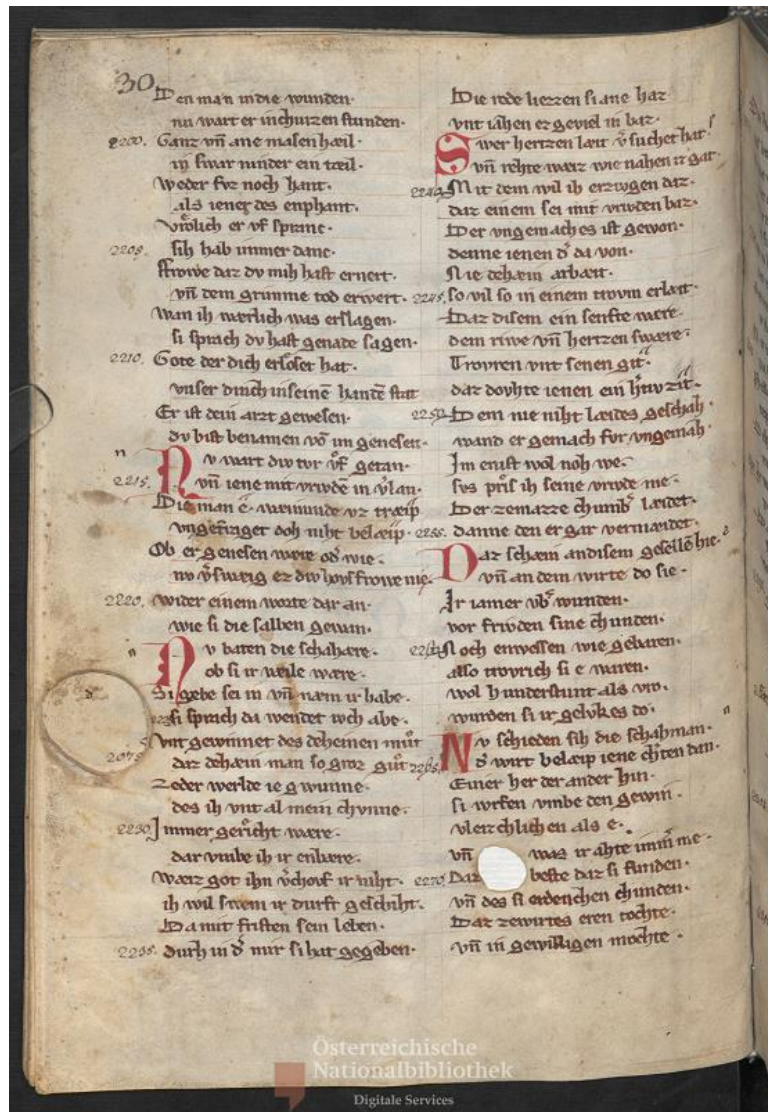 30
Den man indie wunden·
nu wart er inchurzen stunden·
2200. Ganz vñ ane masen hæil·
in swar ninder ein tæil·
Weder fvz noch hant·
als iener des enphant·
Vrͦlich er vf spranc·
2205. sih hab immer danc·
frowe daz dv mih hast ernert·
vñ dem grimme tod erwert·
Wan ih wærlich was erslagen·
si sprach dv hast genade sagen·
2210. Gote der dich erloset hat·
vnser dinch inseinē handē stat
Er ist dein arzt gewesen·
dv bist benamen vō im genesen·
n
Nv wart div tvr vf getan·
2215. vñ iene mit vrivdē in v̓lan·
Die man ê· weinunde vz træip
vngetræiget doh niht belæip·
Ob er genesen were od̓ wie·
nv v̓swæig ez div hovsfrowe nie·
2220. wider einem worte dar an·
wie si die salben gewan·
n
Nv baten die schahære·
ob si ir veile wære·
Si gebe sei in vñ næm ir habe·
si sprach da wendet iwch abe·
Vnt gewinnet des deheinen mut
2075 daz dehæin man so groz gut
Zeder werlde ie gwunne·
des ih vnt al mein chvnne·
2230. Immer gericht wære·
dar vmbe ih ir enbære·
Wæiz got ihn v̓chovf ir niht·
ih wil swem ir durft geschiht·
Da mit fristen sein leben·
2235. durh in d̓ mir si hat gegeben·
Die rede liezzen si ane haz
vnt iahen ez geviel in baz·
s
Swer hertzen læit v̓suchet hat
vñ rehte wæiz wie nahen iz gat·
2240. Mit dem wil ih erzivgen daz·
daz einem sei mit vrivden baz·
Der vngemaches ist gewon·
denne ienen d̓ da von·
Nie dehæin arbæit·
2245. so vil so in einem trovm erlæit·
Daz disem ein senfte were·
dem riwe vñ hertzen swære·
Trovren vnt senen git
daz dovhte ienen ein h̓tiv zit·
2250. Dem nie niht læides geschah
wand er gemach fvr vngemah
Im enist wol noh we·
svs pris ih seine vrivde me·
Der zemazze chumb̓ læidet·
2255. danne den er gar vermæidet·
d
Daz schæin andisem gesellē hie·
vñ an dem wirte do sie·
Ir iamer vb̓ wunden·
vor frivden sine chunden·
2260. Noch enwessen wie gebaren·
also trovrich si e waren·
wol hunderstunt als vro·
wurden si ir gelvkes do·
n
Nv schieden sih die schahman·
2265. d̓ wirt belæip iene ch̓ten dan·
Einer her der ander hin·
si wrfen vmbe den gewin·
vleizchlichen als e·
vñ was ir ahte im̄m̓ me·
2270. Daz beste daz si funden·
vñ des si erdenchen chunden·
Daz zewirtes eren tochte·
vñ in gewilligen mochte·
Österreichische
Nationalbibliothek
Digitale Services